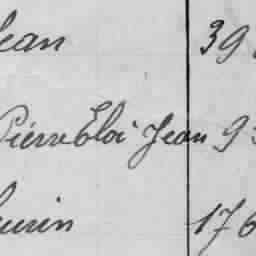 Jean 39
Pierre Eloi Jean 93
176